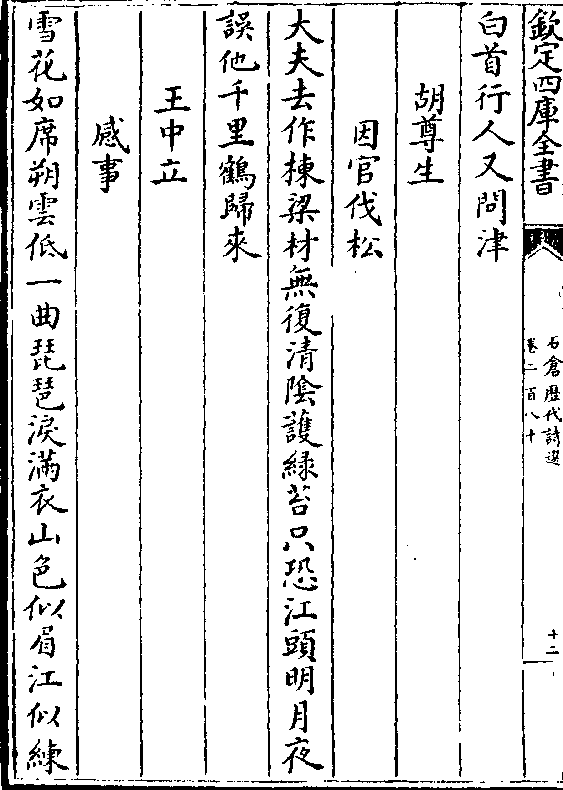 欽定四庫全書
石倉歷代詩選
卷二百八十
十二
白首行人又問津
胡尊生
因官伐松
大夫去作棟梁材無復清陰護緑苔只恐江頭明月夜
誤他千里鶴歸來
王中立
感事
雪花如席朔雲低一曲琵琶淚滿衣山色似眉江似練